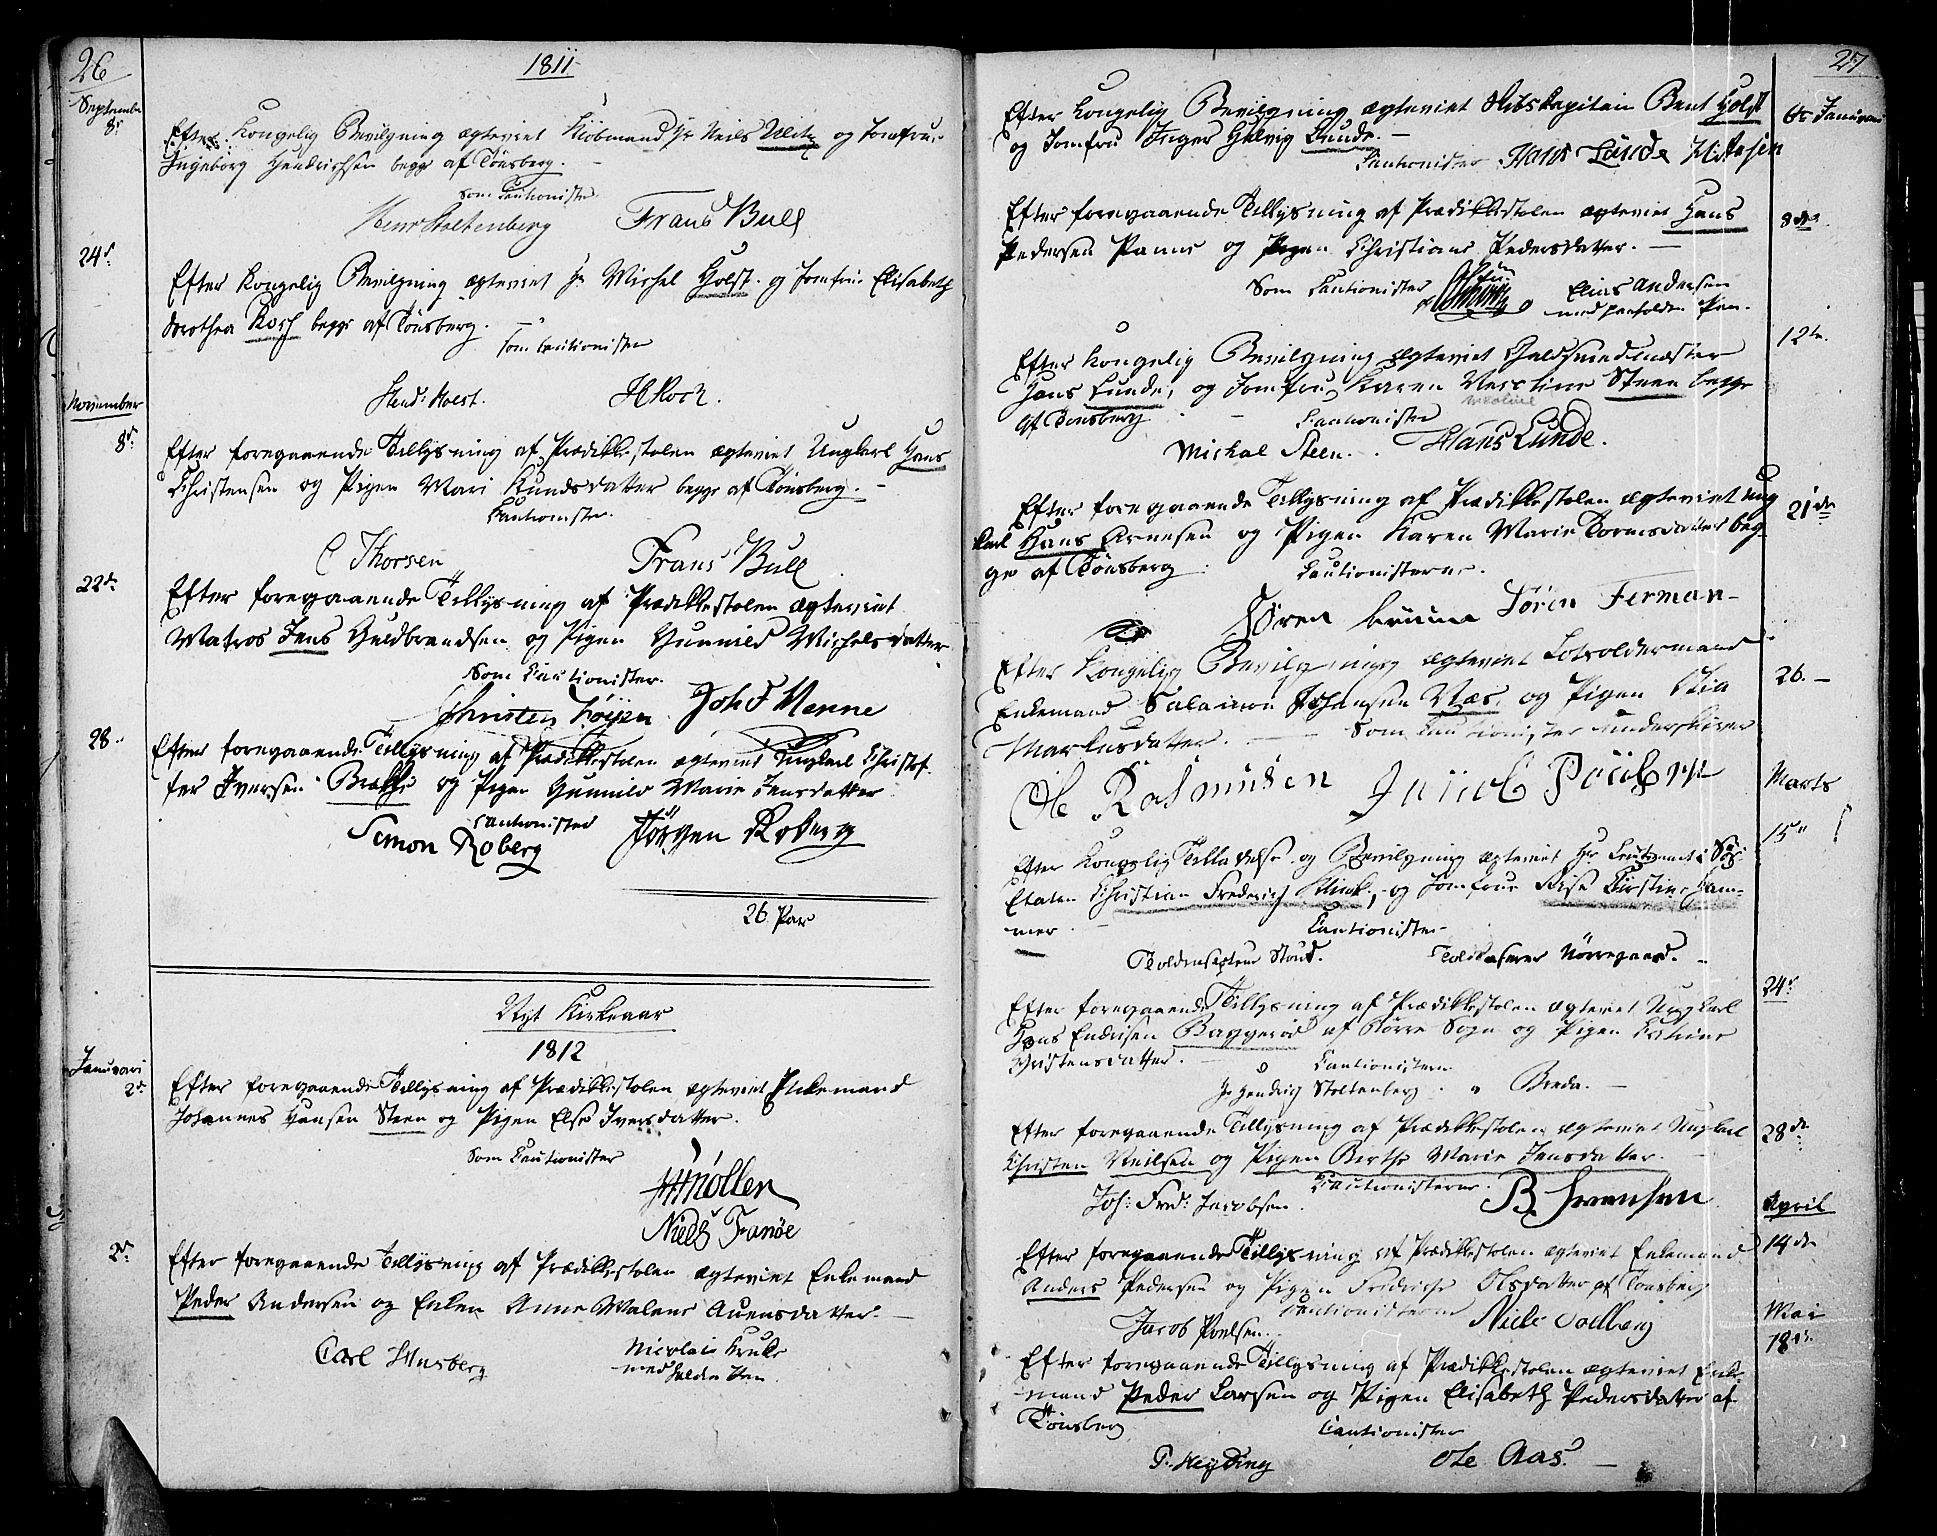 26
1811
Septembr
8de
Efter Kongelig Bevilgning ægteviet Kiöbmand Hr Neils Ulitz og Jomfrue
Ingeborg Hendrichsen begge af Tönsberg.
som Cautionister
Henr Stoltenberg Frans Bull
24de
Efter Kongelig Bevilgning ægteviet Hr Michel Holst og Jomfrue Elisabeth
Dorothea Koch begge af Tönsberg.
som Cautionister
Hend: Holst. H Koch.
November
8de
Efter foregaaende Tillysning af Prædikkestolen ægteviet Ungkarl Hans
Christensen og Pigen Mari Knudsdatter begge af Tönsberg.
Cautionister.
C Thorsen Frans Bull
22de
Efter foregaaende Tillysning af Prædikkestolen ægteviet
Matros Jens Guldbrandsen og Pigen Gunnild Michelsdatter
Som Cautionister.
Christen Joh F Menne
28
Efter foregaaende Tillysning af Prædikkestolen ægteviet Ungkarl Christof-
fer Iversen Brekke og Pigen Gunnild Marie Jensdatter
Cautionister
Simon Roberg Jörgen Roberg
26 Par
Nyt Kirkeaar
1812
Januari
2de
Efter foregaaende Tillysning af Prædikkestolen ægteviet Enkemand
Johannes Hansen Steen og Pigen Else Iversdatter.
Som Cautionister
Möller
Niels Franöe
2de
Efter foregaaende Tillysning af Prædikkestolen ægteviet Enkemand
Peder Andersen og Enken Anne Malene Auensdatter.
Carl Husberg Nicolai Kruke
med holden Pen.
27
6te Januari
Efter Kongelig Bevilgning ægteviet Skibskapitain Bent Holst
og Jomfru Inger Helvig Lunde.
Cautionister Hans Lunde
8de
Efter foregaaende Tillysning af Prædikkestolen ægteviet Hans
Pedersen og Pigen Christiane Pedersdatter.
Som Cautionister Elias Andersen
med paaholden Pen.
12te.
Efter Kongelig Bevilgning ægteviet Guldsmedmester
Hans Lunde, og Jomfru Karen Steen begge
af Tönsberg Cautionister
Michal Steen. Hans Lunde.
21de
Efter foregaaende Tillysning af Prædikkestolen ægteviet Ung
karl Hans Arnesen og Pigen Karen Marie beg-
ge af Tönsberg. Cautionisterne.
Sören Bruun Sören Ferman
26.
Efter Kongelig Bevilgning ægteviet Lodsoldermand
Enkemand Salamon Johansen Næs, og Pigen
Markusdatter. Som Cautionister underskriver
Ole Rasmusen Jacob Poulsen
Marts
15
Efter Kongelig Tilladelse og Bevilgning ægteviet Hr Leutenant i Söe
Etaten Christian Frederich Klinck, og Jomfrue Else Kirstine Ham-
mer. Cautionister
Toldinspecteur Stoud. Toldkaserer Nörregaard.
24de
Efter foregaaende Tillysning af Prædikkestolen ægteviet Ungkarl
Hans Endresen Baggeröd af Borre Sogn og Pigen
Christensdatter. Cautionisterne
Hr Hendrich Stoltenberg " Breda.
28de
Efter foregaaende Tillysning af Prædikkestolen ægteviet Ungkarl
Christen Neilsen og Pigen Berthe Marie Jensdatter.
Cautionisterne.
Joh: Fred: Jacobsen. B. Svensen
April
14de
Efter foregaaende Tillysning af Prædikkestolen ægteviet Enkemand
Anders Pedersen og Pigen Fredriche Olsdatter af Tönsberg
Cautionisterne
Jacob Poulsen. Niels Solberg
Mai
18de
Efter foregaaende Tillysning af Prædikkestolen ægteviet Enke-
mand Peder Larsen og Pigen Elisabeth Pedersdatter af
Tönsberg Cautionister
P. Heyding Ole Aas.